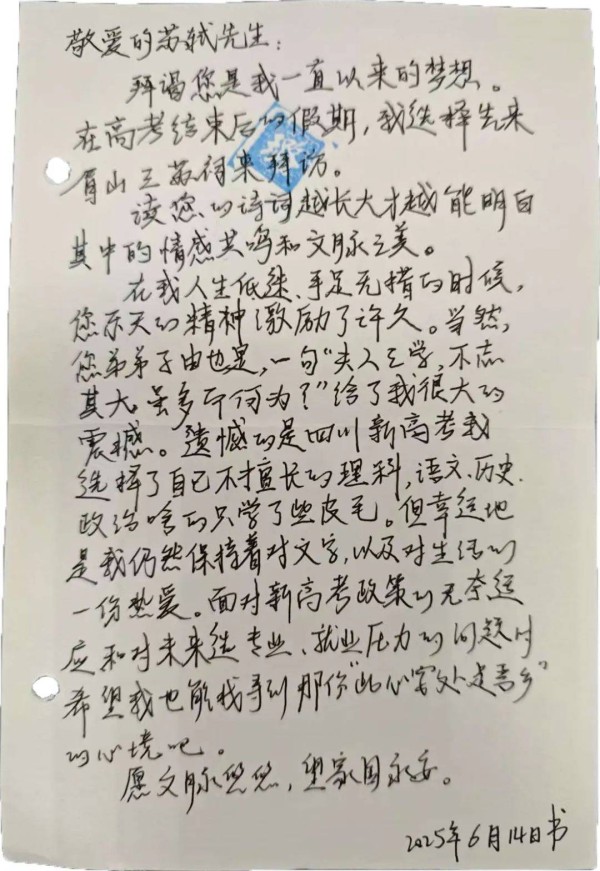 敬爱的苏轼先生：
拜谒您是我一直以来的梦想。
在高考结束后的假期，我选择先来
眉山三苏祠来拜访。
读您的诗词越长大才越能明白
其中的情感共鸣和文脉之美。
在我人生低迷、手足无措的时候，
您乐天的精神激励了许久。当然，
您弟弟子由也是，一句“夫人之学，不志
其大，虽多而何为？”给了我很大的
震撼。遗憾的是四川新高考我
选择了自己不才擅长的理科，语文、历史、
政治啥的只学了些皮毛。但幸运地
是我仍然保持着对文字，以及对生活的
一份热爱。面对新高考政策的无奈适
应和对未来选专业、就业压力的问题时
希望我也能找寻到那份“此心安处是吾乡”
的心境吧。
愿文脉悠悠，望家国永安。
2025年6月14日书